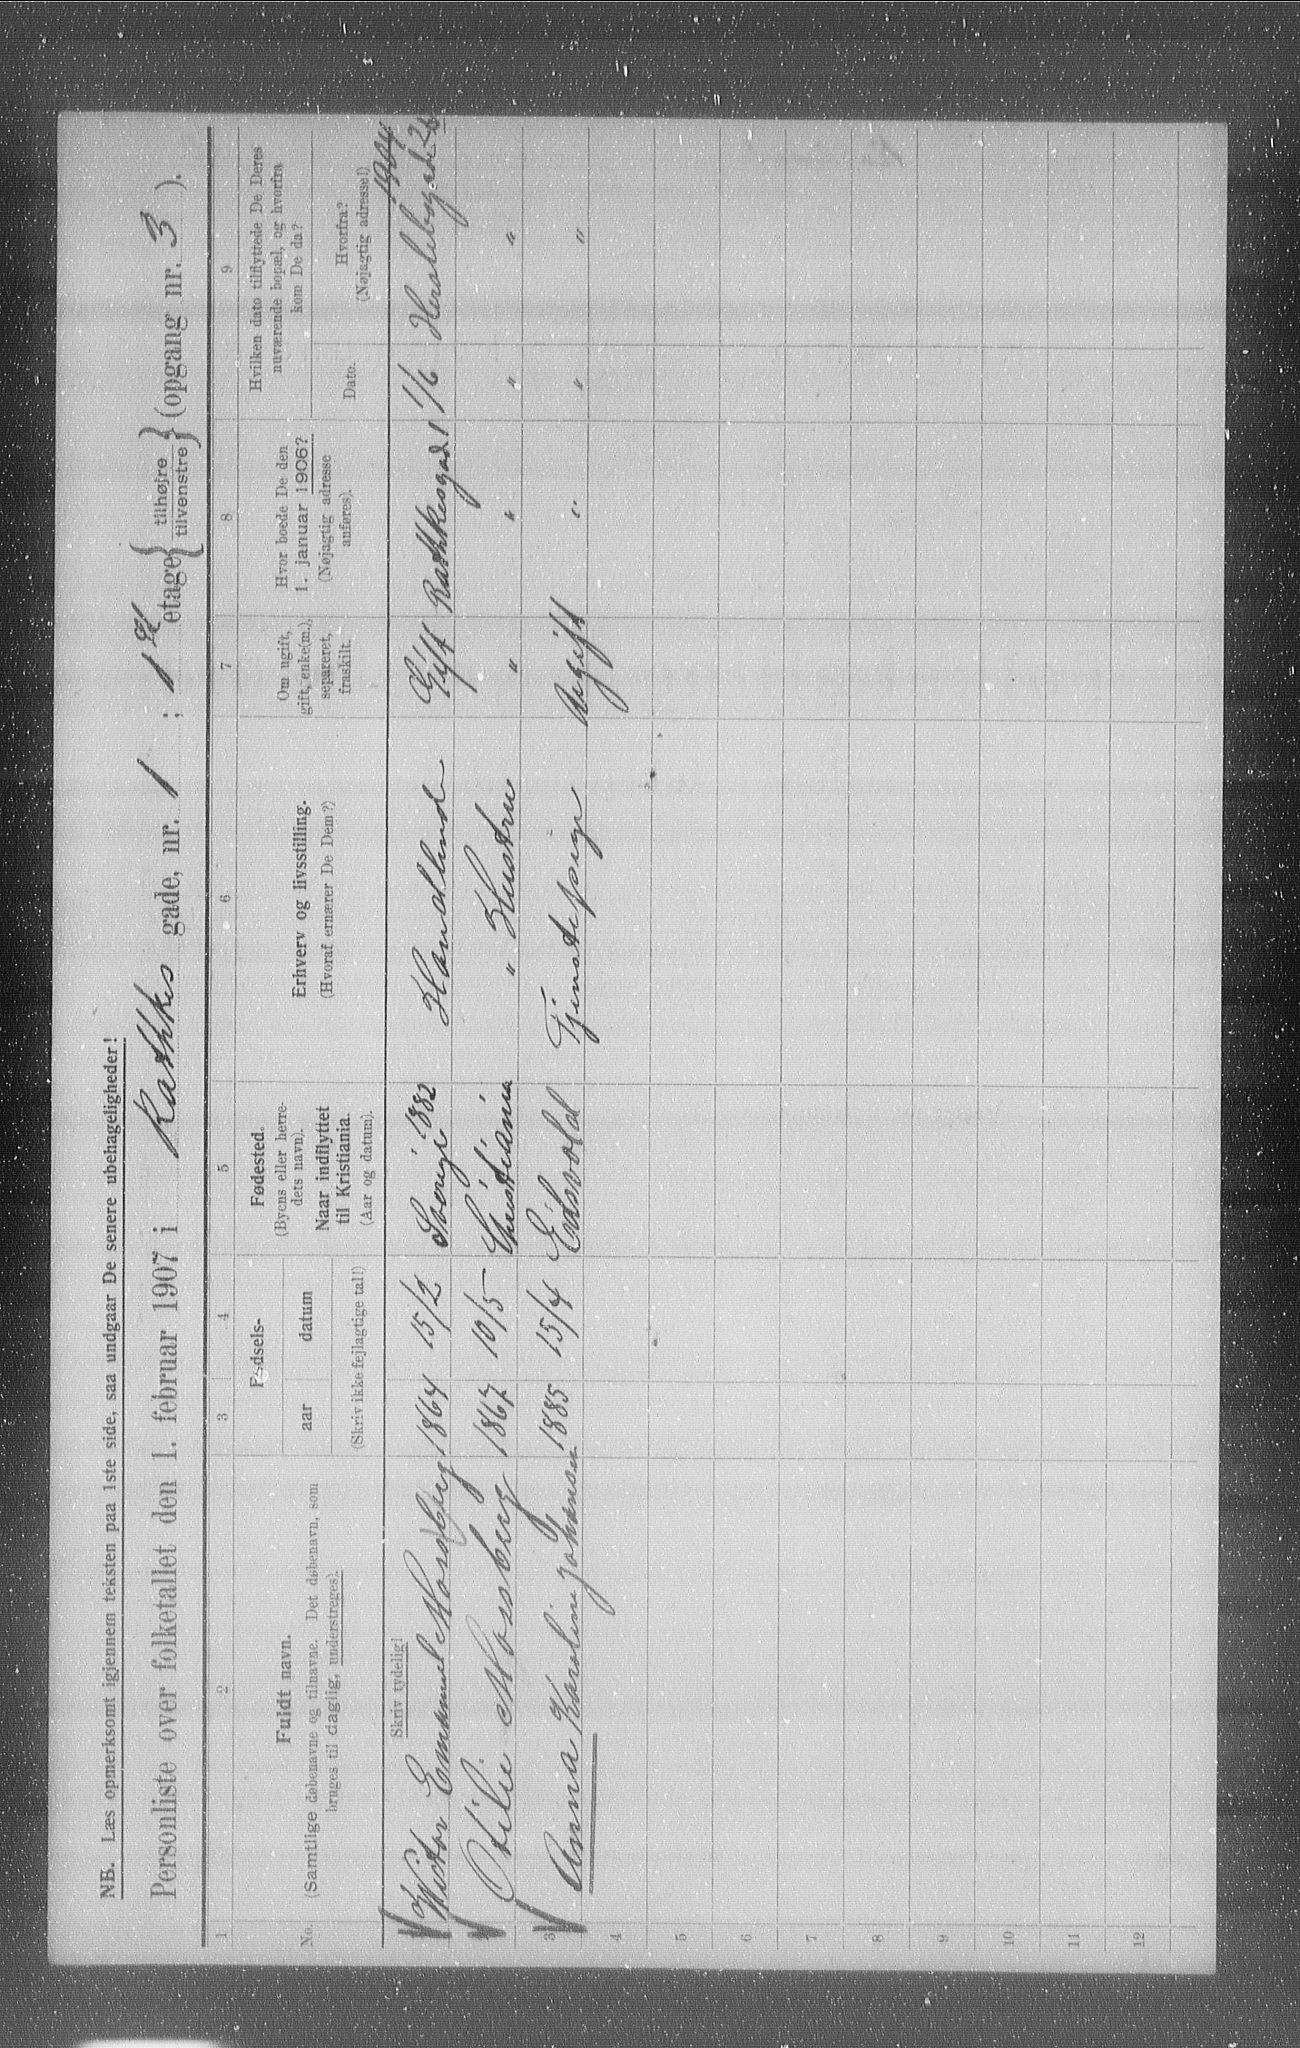 NB. Læs opmerksomt igjennem teksten paa 1ste side, saa undgaar De senere ubehageligheder!
Personliste over folketallet den 1. februar 1907 i Rathkes gade, nr. 1 ; 1ste etage { tilhøjre / tilvenstre } (opgang nr. 3 ).
1 2 3 4 5 6 7 8 9
No.
Fuldt navn.
(Samtlige døbenavne og tilnavne. Det døbenavn, som
bruges til daglig, understreges).
Skriv tydelig!
Fødsels-
aar datum
(Skriv ikke fejlagtige tal!)
Fødested.
(Byens eller herre-
dets navn).
Naar indflyttet
til Kristiania
(Aar og datum).
Erhverv og livsstilling.
(Hvoraf ernærer De Dem?)
Om ugift,
gift, enke(m.),
separeret,
fraskilt.
Hvor boede De den
1. januar 1906?
(Nøjagtig adresse
anføres).
Hvilken dato tilflyttede De Deres
nuværende bopæl, og hvorfra
kom De da?
Dato.
Hvorfra?
(Nøjagtig adresse!)
Wictor Emanuel Mossberg 1864 15/2 Sverige 1882 Handlende Gift Rathkesgade 1 1/6 1904 Herslebsgade 26
Otilie Mossberg 1867 10/5 Christiania " Hustru " " " "
3 Anna Karoline Johansen 1885 15/4 Eidsvold Tjenestepige Ugift " " "
4
5
6
7
8
9
10
11
12